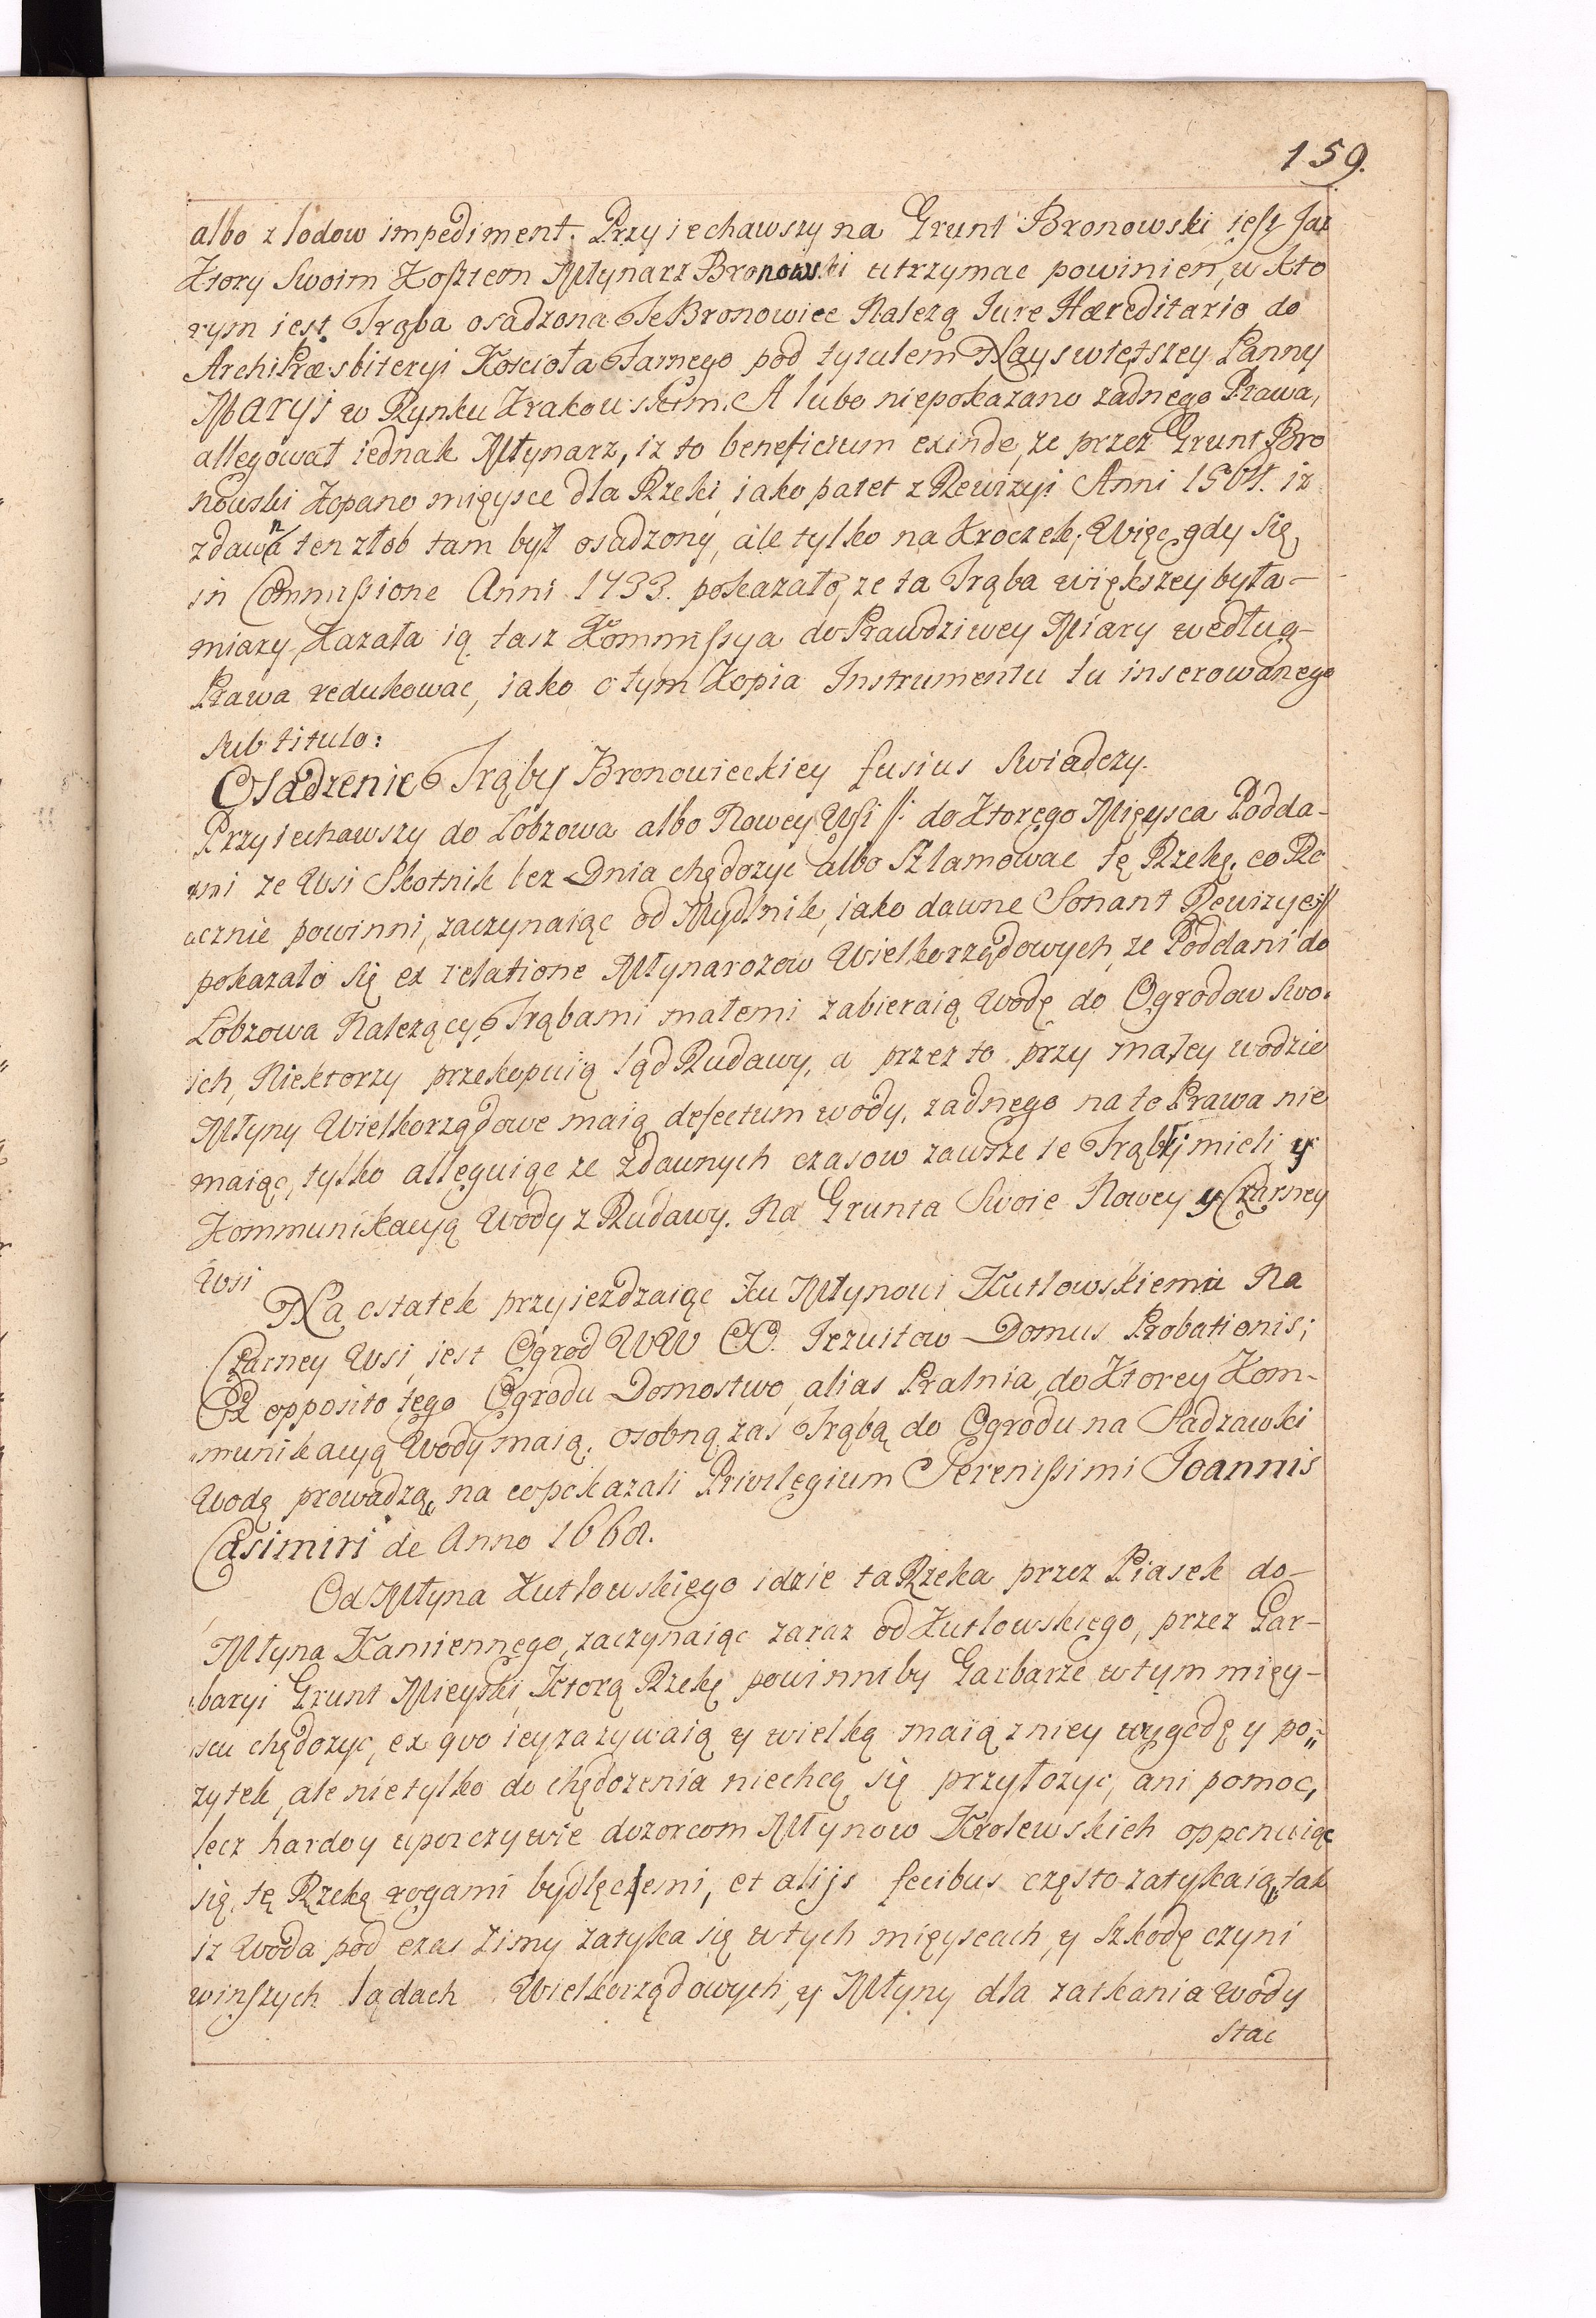 159.
albo z lodow impediment. Przyiechawszy na Grunt Bronowski iest Jaz
Ktory Swoim Kosztem Młynarz Bronowski utrzymac powinien, w Kto
rym iest Trąba osadzona Te Bronowice Nalezą Jure Hæreditario do
ArchiPræsbiteryi Kościoła Farnego pod tytułem Nayswiętszey Panny
Maryi w Rynku Krakowskim. A lubo niepokazano zadnego Prawa,
allegował iednak Młynarz, iz to beneficium exinde, ze przez Grunt Bro
nowski Kopano mięysce dla Rzeki, iako patet z Rewizyi Anni iz
zdawna ten złob tam był osadzony, ale tylko na Kroczek; Więc gdy się
in Commissione Anni 1733. pokazało, ze ta Trąba większey była-
miary, Kazała ią tasz Kommissya do Prawdziwey Miary według-
Prawa redukowac, iako o tym Kopia Instrumentu tu inserowanego
sub titulo:
Osadzenie Trąby Bronowieckiey fusius Swiadczy.
Przyiechawszy do Łobzowa albo Nowey Wsi //: do Ktorego Mięysca Podda-
ni ze Wsi Skotnik bez Dnia chędozyc albo Szlamowac tę Rzekę, co Ro
cznie powinni, zaczynaiąc od Mydlnik, iako dawne Sonant Rewizye://
pokazało się ex relatione Młynarozow Wielkorządowych, ze Poddani do
Łobzowa Nalezący, Trąbami małemi zabieraią Wodę do Ogrodow Swo-
ich, Niektorzy przekopuią ląd Rudawy, a przez to przy małey wodzie
Młyny Wielkorządowe maią defectum wody, zadnego na to Prawa nie
maiąc, tylko alleguiąc ze zdawnych czasow zawsze te Trąby mieli y
Kommunikacyą Wody z Rudawy. Na Grunta Swoie Nowey y Czarney
Wsi
Na ostatek przyiezdzaiąc Ku Młynowi Kutlowskiemu Na
Czarney Wsi, jest Ogrod WW OO. Jezuitow Domus Probationis;
Ex opposito tego Ogrodu Domostwo, alias Pralnia, do Ktorey Kom-
munikacyą Wody maią, osobną zas Trąbą do Ogrodu na Sadzawki
Wodę prowadzą, na co pokazali Privilegium Serenissimi Joannis
Casimiri de Anno
Od Młyna Kutlowskiego idzie ta Rzeka przez Piasek do-
Młyna Kamiennego, zaczynaiąc zaraz od Kutlowskiego, przez Gar-
baryi Grunt Mieyski, Ktorą Rzekę powinniby Garbarze w tym mięy-
scu chędozyc, ex quo iey zazywaią y wielką maią z niey wygodę y po-
zytek, ale nie tylko do chędozenia niechcą się przyłozyc, ani pomoc,
lecz hardo y uporczywie dozorcom Młynow Krolewskich opponuiąc
się, tę Rzekę rogami bydlęcemi, et alijs fecibus często zatykaią, tak
iz Woda pod czas Zimy zatyka się w tych mięyscach, y Szkodę czyni
w inszych lądach Wielkorządowych, y Młyny dla zatkania Wody
stac